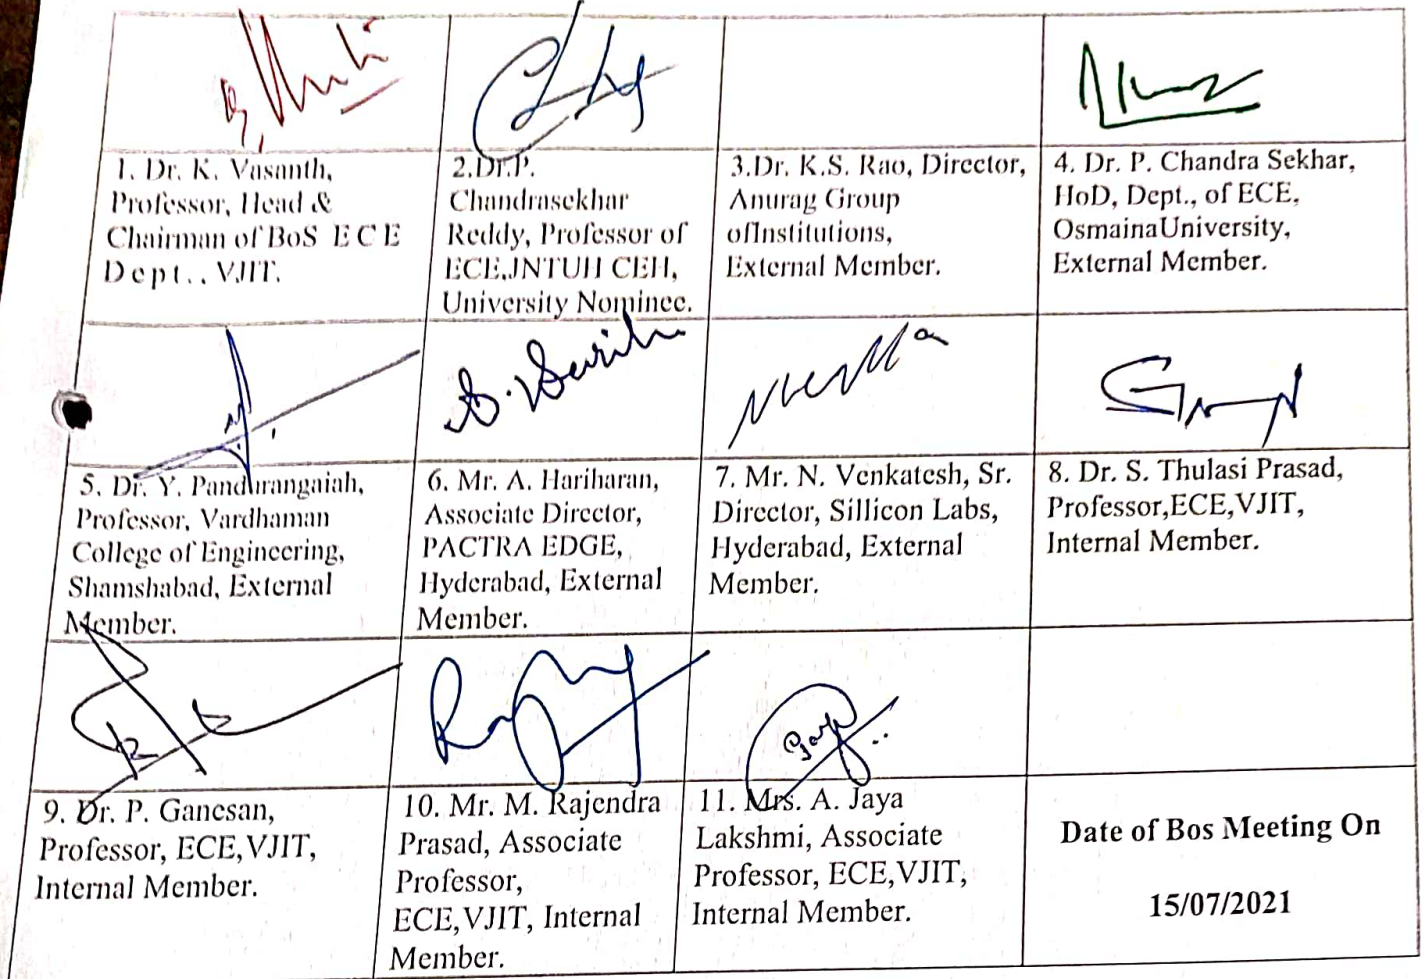 1. Dr. K. Vasanth,
Professor, Head &
Chairman of BoS E C E
D e p t . , VJIT.
2.Dr.P.
Chandrasekhar
Reddy, Professor of
ECE,JNTUH CEH,
University Nominee.
3.Dr. K.S. Rao, Director,
Anurag Group
ofInstitutions,
External Member.
4. Dr. P. Chandra Sekhar,
HoD, Dept., of ECE,
OsmainaUniversity,
External Member.
5. Dr. Y. Pandurangaiah,
Professor, Vardhaman
College of Engineering,
Shamshabad, External
Member.
6. Mr. A. Hariharan,
Associate Director,
PACTRA EDGE,
Hyderabad, External
Member.
7. Mr. N. Venkatesh, Sr.
Director, Sillicon Labs,
Hyderabad, External
Member.
8. Dr. S. Thulasi Prasad,
Professor,ECE,VJIT,
Internal Member.
9. Dr. P. Ganesan,
Professor, ECE,VJIT,
Internal Member.
10. Mr. M. Rajendra
Prasad, Associate
Professor,
ECE,VJIT, Internal
Member.
11. Mrs. A. Jaya
Lakshmi, Associate
Professor, ECE,VJIT,
Internal Member.
Date of Bos Meeting On
15/07/2021